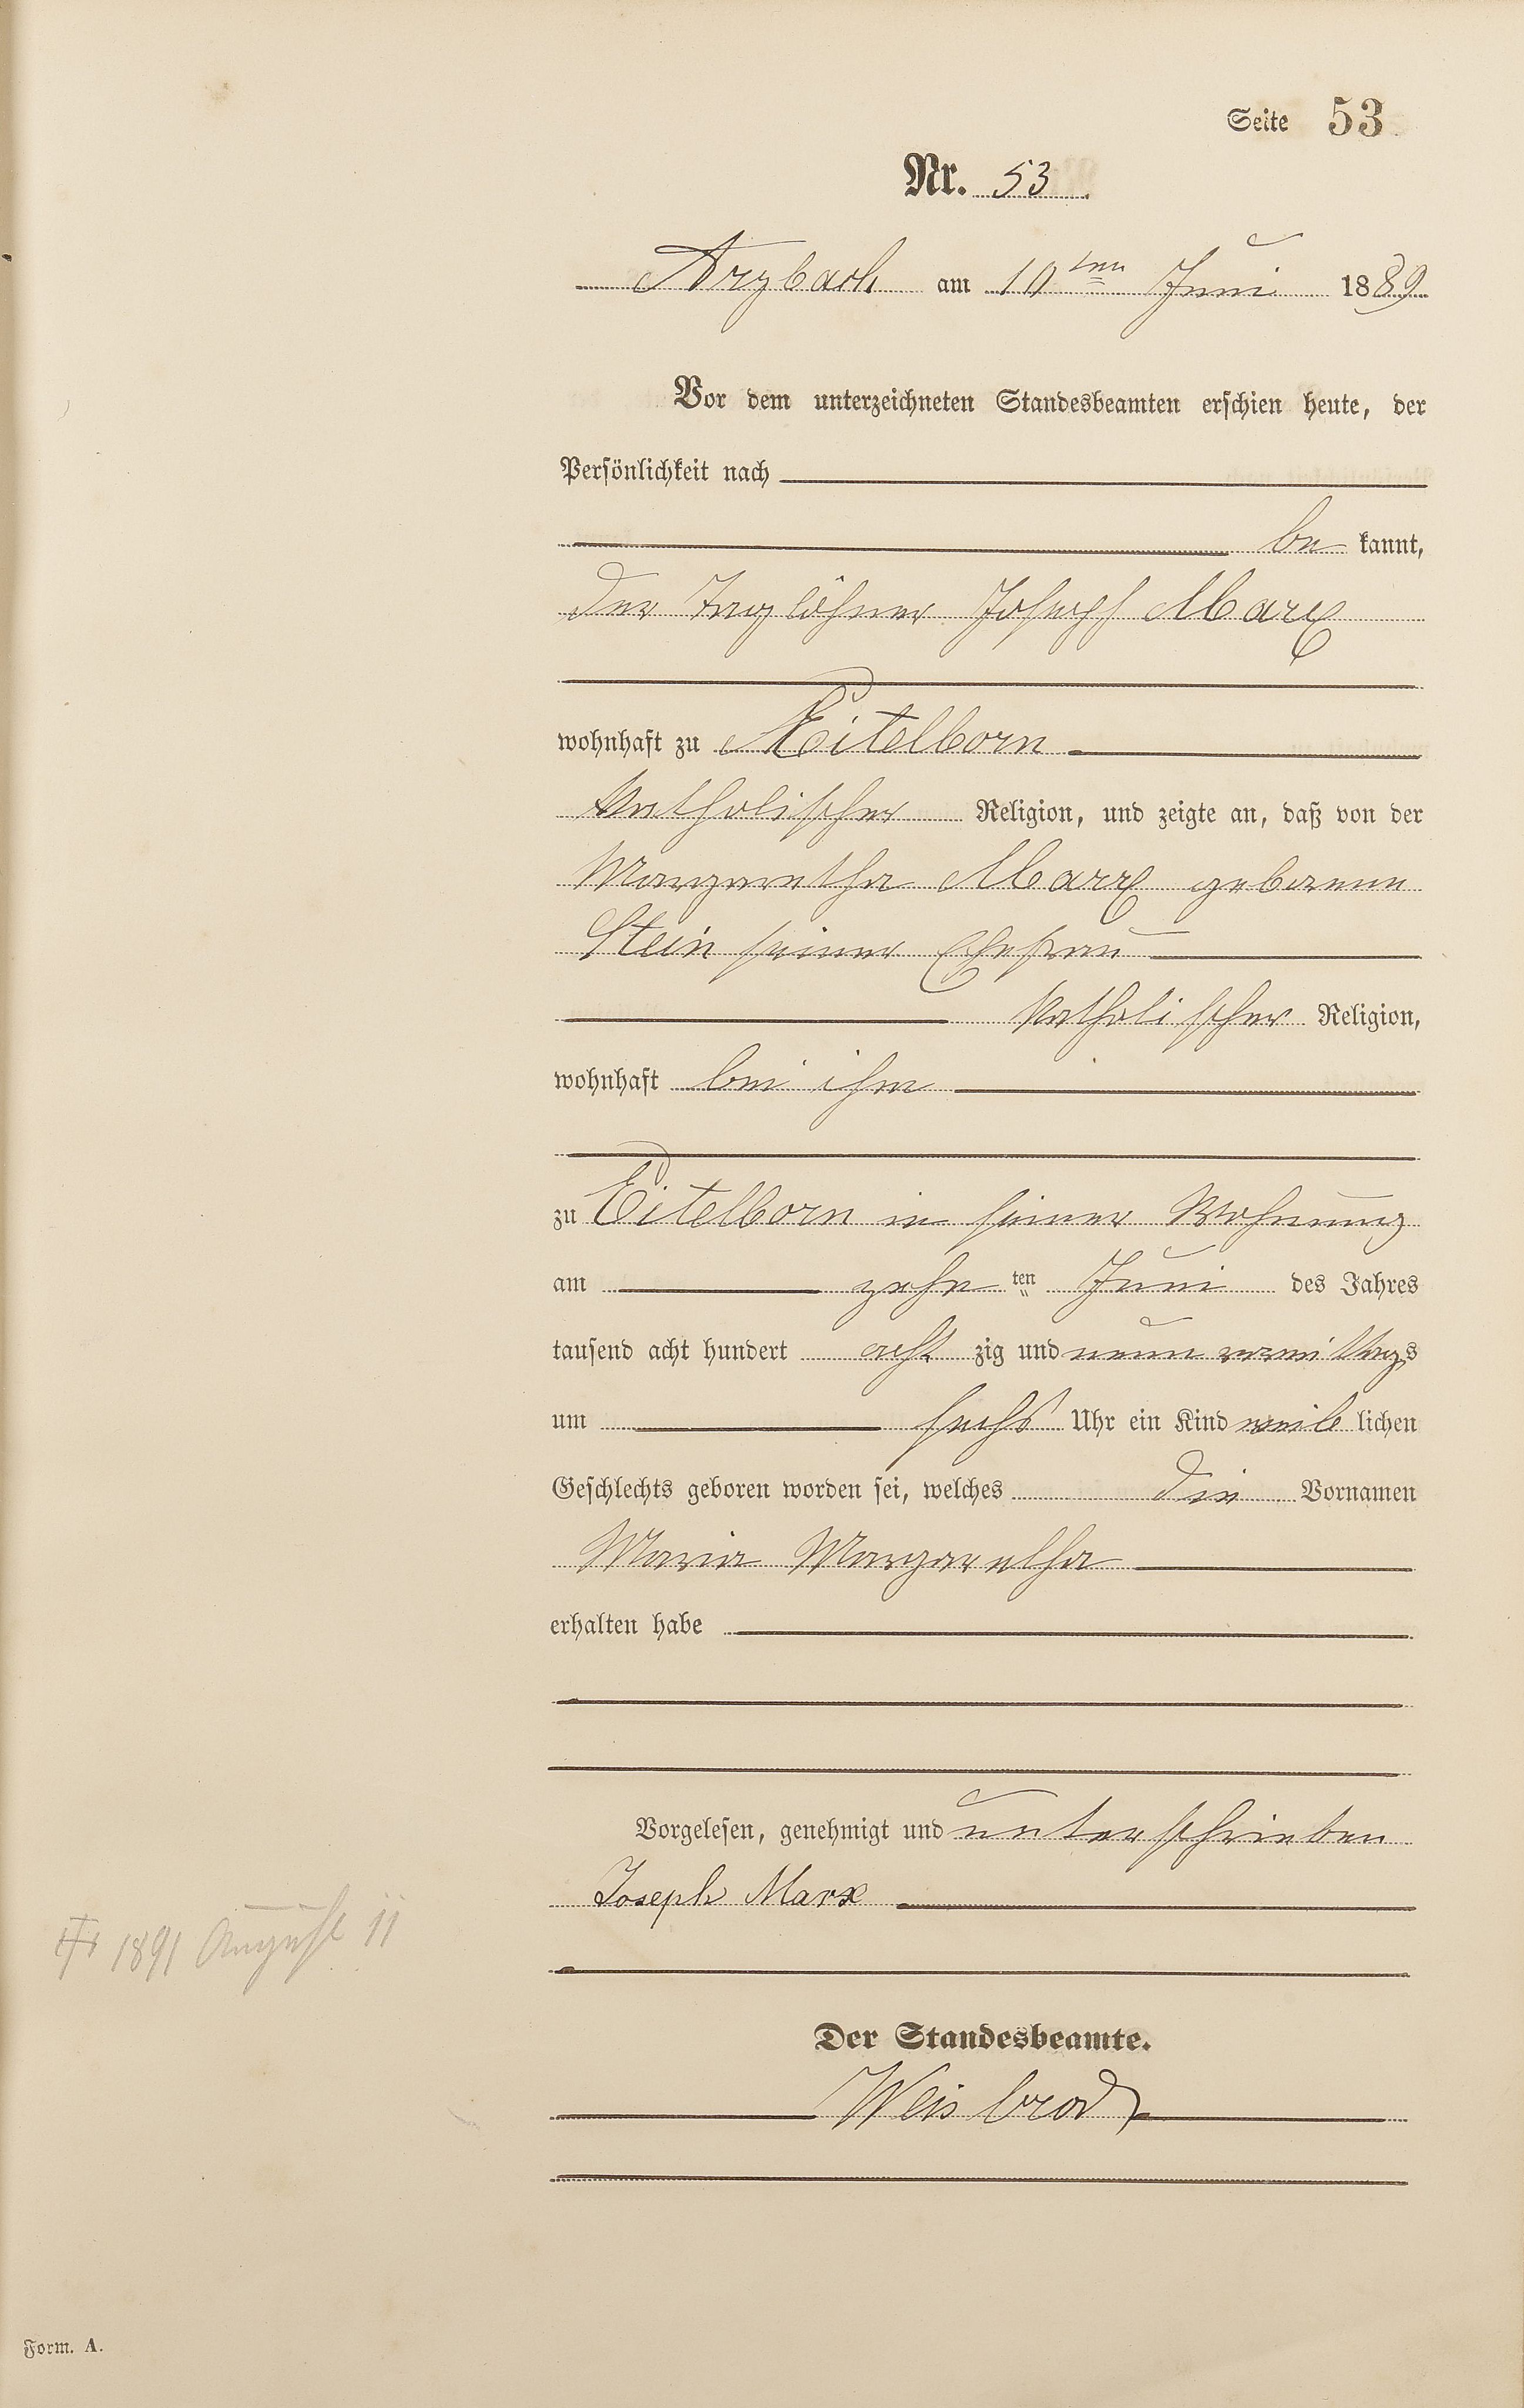 Seite 53
Nr. 53
Arzbach am 10ten Juni 1889
Vor dem unterzeichneten Standesbeamten erschien heute, der
Persönlichkeit nach
be kannt,
der Taglöhner Joseph Marx
wohnhaft zu Eitelborn
katholischer Religion, und zeigte an, daß von der
Margaretha Marx geborene
Stein seiner Ehefrau
katholischer Religion,
wohnhaft bei ihm
zu Eitelborn in seiner Wohnung
am zehn ten Juni des Jahres
tausend acht hundert acht zig und neun vormittags
um sechs Uhr ein Kind weib lichen
Geschlechts geboren worden sei, welches die Vornamen
Maria Margaretha
erhalten habe
Vorgelesen, genehmigt und unterschrieben
Joseph Marx
1891 August 11
Der Standesbeamte.
Weisbrod
Form. A.